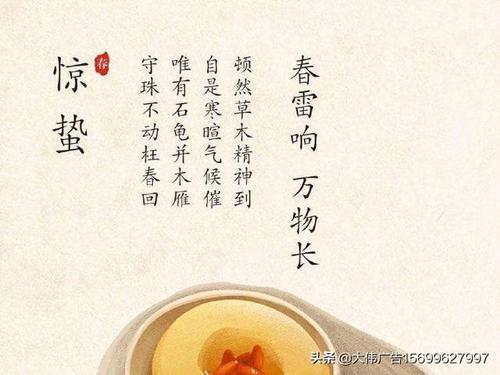 春雷响 万物长
顿然草木精神到
自是寒暄气候催
唯有石龟并木雁
守珠不动枉春回
惊蛰
春
头条@大伟广告15699627997